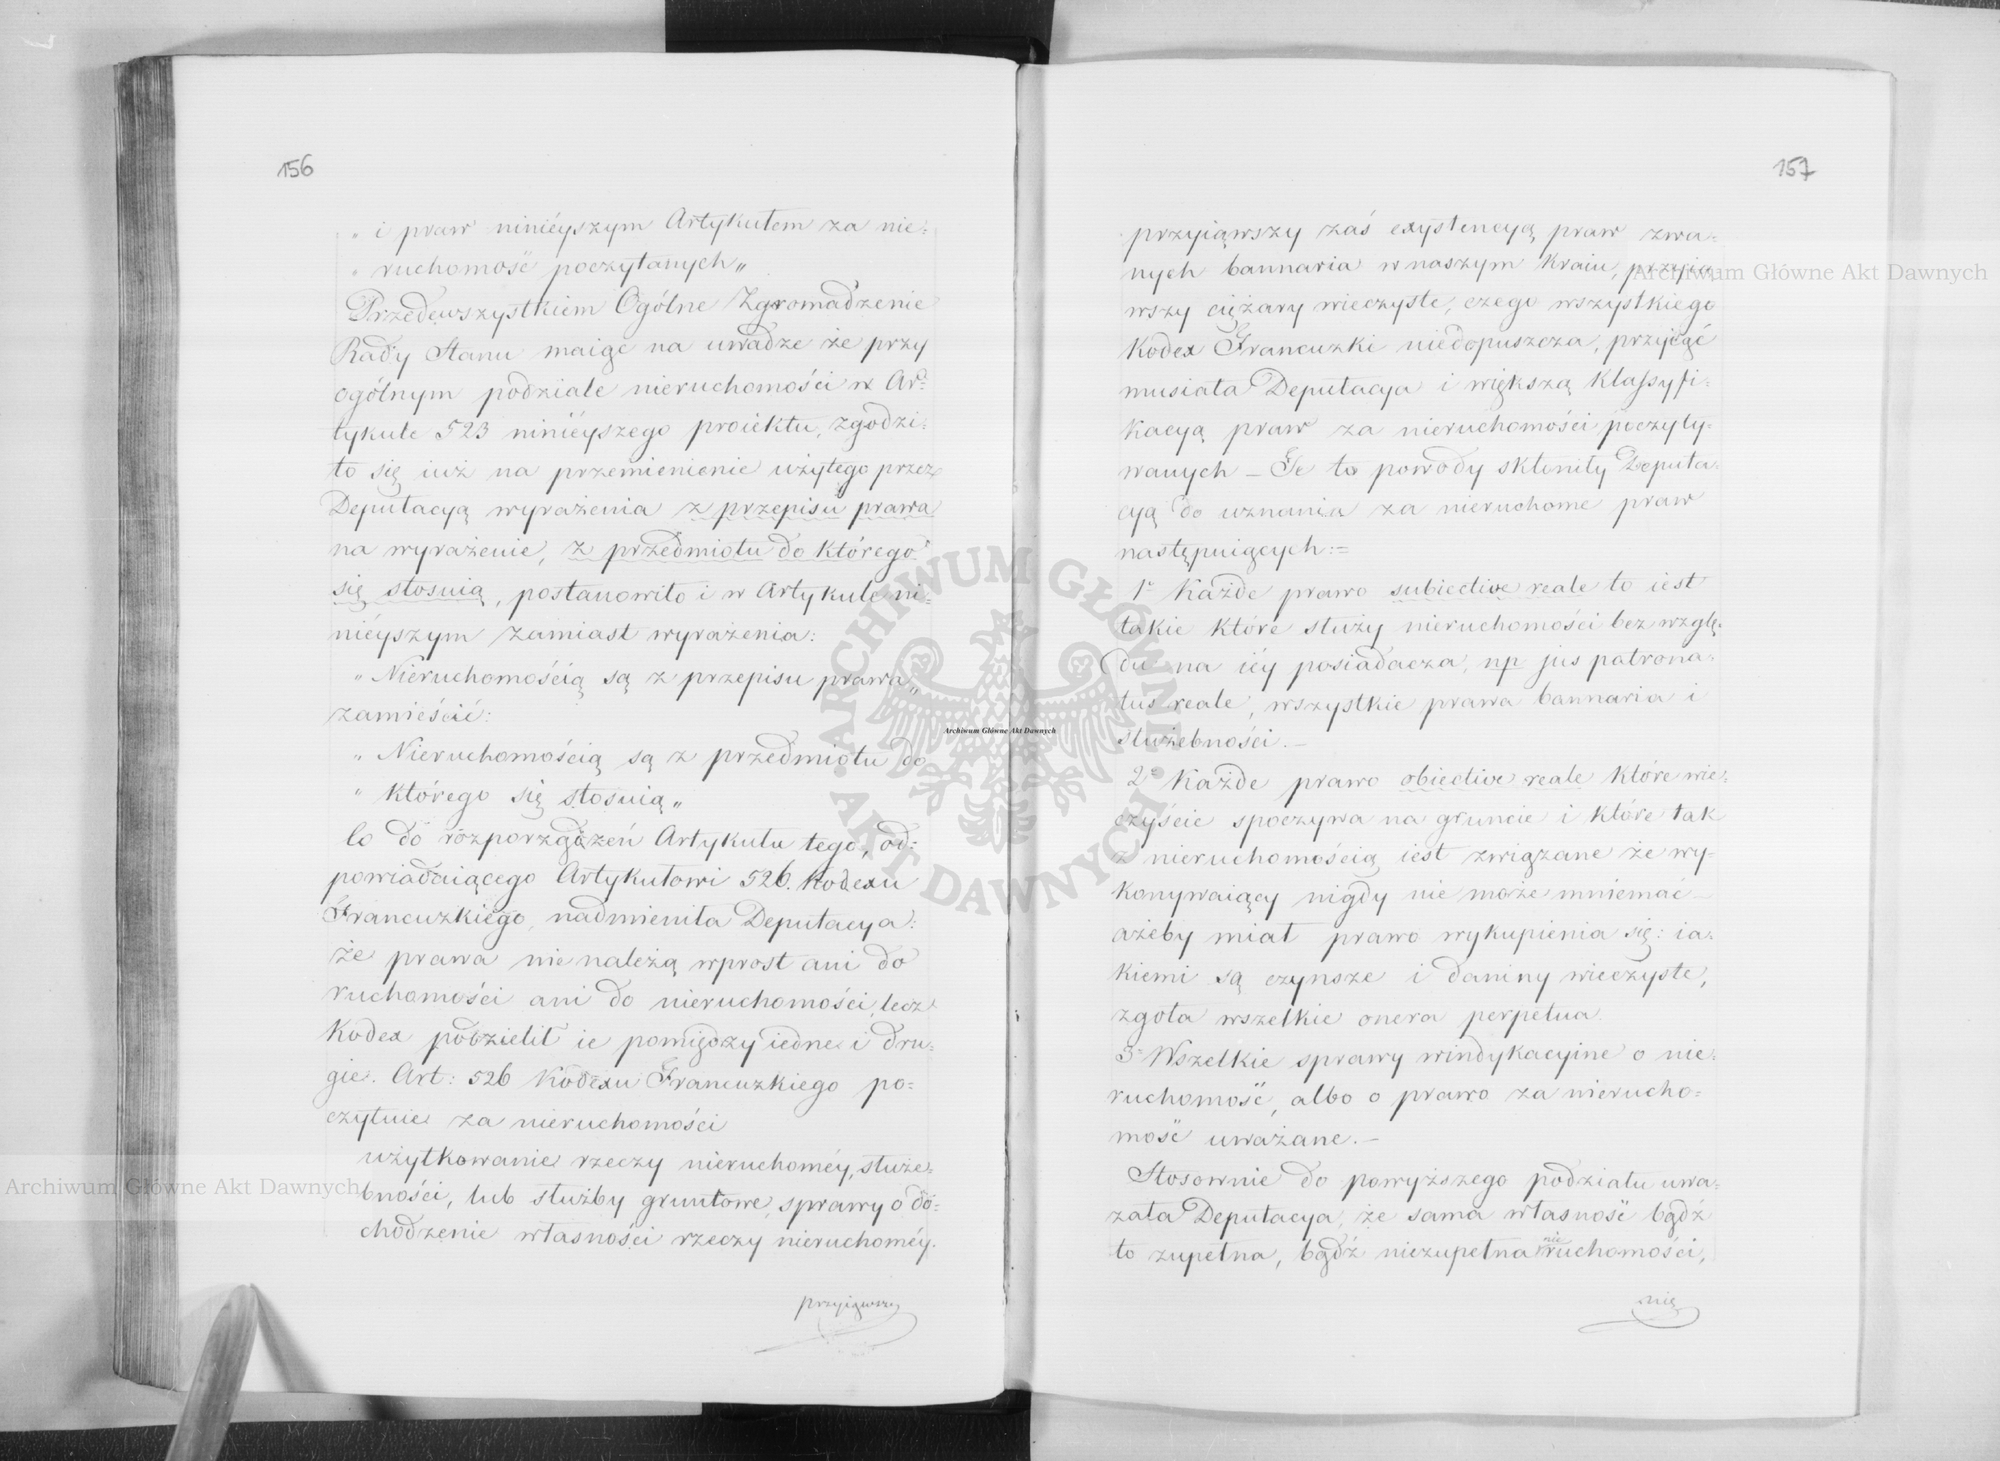 156
„ i praw niniéyszym Artykułem za nie=
„ ruchomość poczytanych„
Przedewszystkiem Ogólne Zgromadzenie
Rady Stanu maiąc na uwadze że przy
ogólnym podziale nieruchomości w Ar=
tykule 523 niniéyszego proiektu, zgodzi=
ło się iuż na przemienienie użytego przez
Deputacyą wyrażenia z przepisu prawa
na wyrażenie, z przedmiotu do którego
się stosuią, postanowiło i w Artykule ni=
niéyszym zamiast wyrażenia:
„ Nieruchomością są z przepisu prawa„
zamieścić:
„ Nieruchomością są z przedmiotu do
„ którego się stosuią„
Co do rozporządzeń Artykułu tego, od=
powiadaiącego Artykułowi 526. Kodexu
Francuzkiego, nadmieniła Deputacya:
że prawa nie należą wprost ani do
ruchomości ani do nieruchomości, lecz
Kodex podzielił ie pomiędzy iedne i dru=
gie. Art: 526 Kodexu Francuzkiego po=
czytuie za nieruchomości
użytkowanie rzeczy nieruchoméy, służe=
bności, lub służby gruntowe, sprawy o do=
chodzenie własności rzeczy nieruchoméy.
przyiąwszy
157
przyiąwszy zaś exystencyą praw zwa=
nych bannaria w naszym Kraiu, przyią
wszy ciężary wieczyste, czego wszystkiego
Kodex Francuzki niedopuszcza, przyiąć
musiała Deputacya i większą Klassyfi=
kacyą praw za nieruchomości poczyty=
wanych – Te to powody skłoniły Deputa=
cyą do uznania za nieruchome praw
następuiących:=
1° Każde prawo subiective reale to iest
takie które służy nieruchomości bez wzglę=
du na iéy posiadacza, np jus patrona=
tus reale, wszystkie prawa bannaria i
służebności. –
2° Każde prawo obiective reale które wie=
czyście spoczywa na gruncie i które tak
z nieruchomością iest związane że wy=
konywaiący nigdy nie może mniemać –
ażeby miał prawo wykupienia się: ia=
kiemi są czynsze i daniny wieczyste,
zgoła wszelkie onera perpetua.
3° Wszelkie sprawy windykacyine o nie=
ruchomość, albo o prawo za nierucho=
mość uważane. –
Stosownie do powyższego podziału uwa=
żała Deputacya, że sama własność bądź
to zupełna, bądź niezupełna nieruchomości,
nie
Archiwum Główne Akt Dawnych
Archiwum Główne Akt Dawnych
Archiwum Główne Akt Dawnych
ARCHIWUM GŁÓWNE AKT DAWNYCH